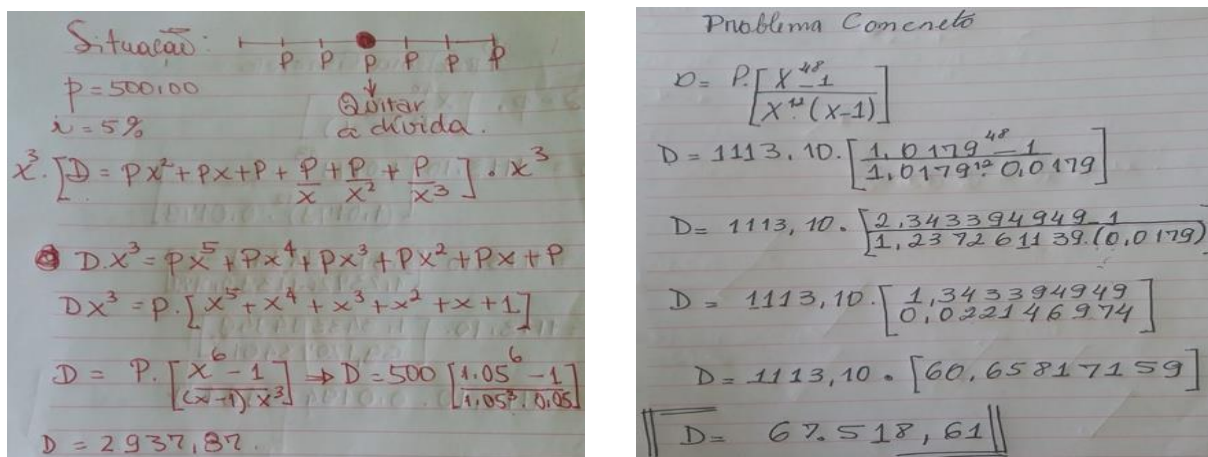 Situação:
P P P P P P
p = 500,00
Quitar
i = 5%
a dívida.
x³. [D = Px² + Px + P + P/x + P/x² + P/x³] . x³
D.x³ = Px⁵ + Px⁴ + Px³ + Px² + Px + P
Dx³ = P. [x⁵ + x⁴ + x³ + x² + x + 1]
D = P. [x⁶ - 1 / (x-1).x³] ⇒ D = 500 [1,05⁶ - 1 / 1,05³. 0,05]
D = 2937,87.
Problema Concreto
D = P. [x⁴⁸ - 1 / x¹². (x-1)]
D = 1113,10. [1,0179⁴⁸ - 1 / 1,0179¹². 0,0179]
D = 1113,10. [2,343394949 - 1 / 1,237261139.(0,0179)]
D = 1113,10. [1,343394949 / 0,022146974]
D = 1113,10. [60,65817159]
D = 67.518,61